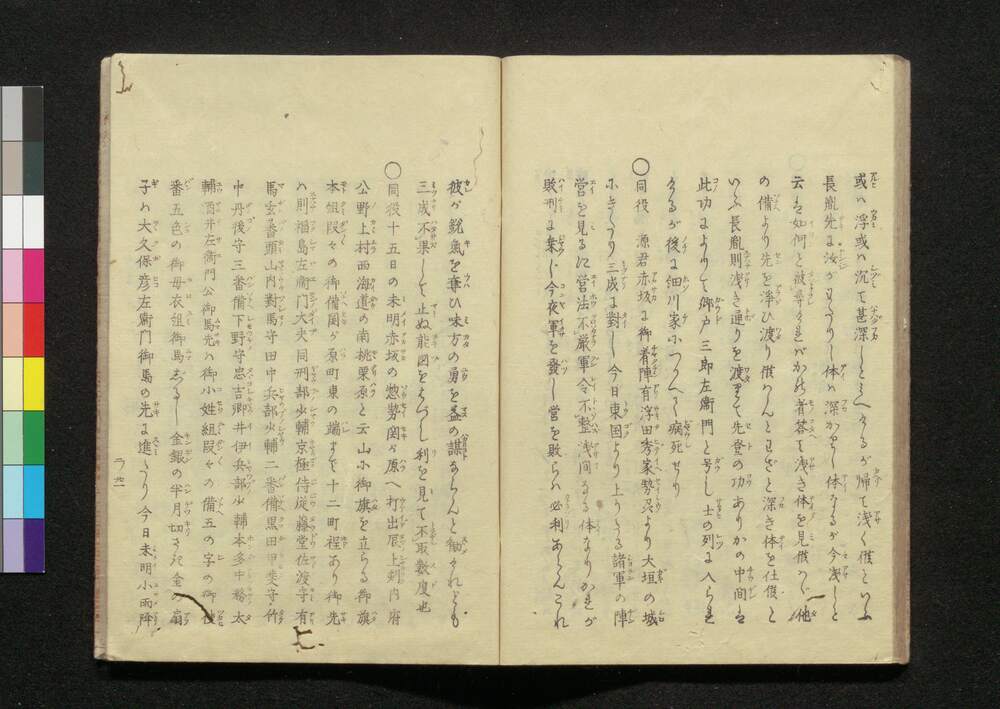 或ハ浮或ハ沉て甚深しとミへけるが帰て浅く候といふ
長胤先に汝がわたりし体ハ深かりし体なるが今浅しと
云ハ如何と被尋けれバかの者答て浅き体を見候ハヾ他
の備より先を浄ひ渡り候ハんとわざと深き体を仕候と
いふ長胤則浅き通りを渡りて先登の功ありかの中間ハ
此功によりて郷戸三郎左衛門と号し士の列に入られ
けるが後に細川家につかへて病死せり
〇同役 源君赤坂に御着陣有浮田秀家勢忍より大垣の城
にきたり三成に對し今日東国より上りたる諸軍の陣
営を見るに営法不嚴軍令不整浅間なる体なりかれが
敗刑に乗じ今夜軍を發し営を敗らバ必利あらんこれ
彼が鋭気を奪ひ味方の勇を益の謀ならんと勧けれども
三成不果して止ぬ能図をはづし利を見て不取數度也
〇同役十五日の未明赤坂の惣勢関ヶ原へ打出辰上刻内府
公野上村西海道の南桃栗原と云山に御旗を立らる御旗
本組段々の御備関ヶ原町東の端まで十二町程あり御先
ハ則福島左衛門大夫同刑部少輔京極侍従藤堂佐渡守有
馬玄番頭山内對馬守田中兵部少輔二番備黒田甲斐守竹
中丹後守三番備下野守忠吉卿井伊兵部少輔本多中務太
輔酒井左衛門公御馬先ハ御小姓組段々の備五の字の御使
番五色の御母衣組御馬じるし金銀の半月切さき金の扇
子ハ大久保彦左衛門御馬の先に進たり今日未明小雨降